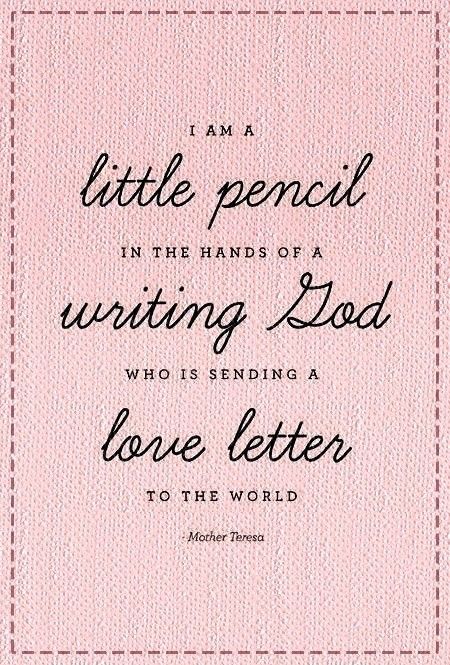 I AM A
little pencil
IN THE HANDS OF A
writing God
WHO IS SENDING A
love letter
TO THE WORLD
- Mother Teresa